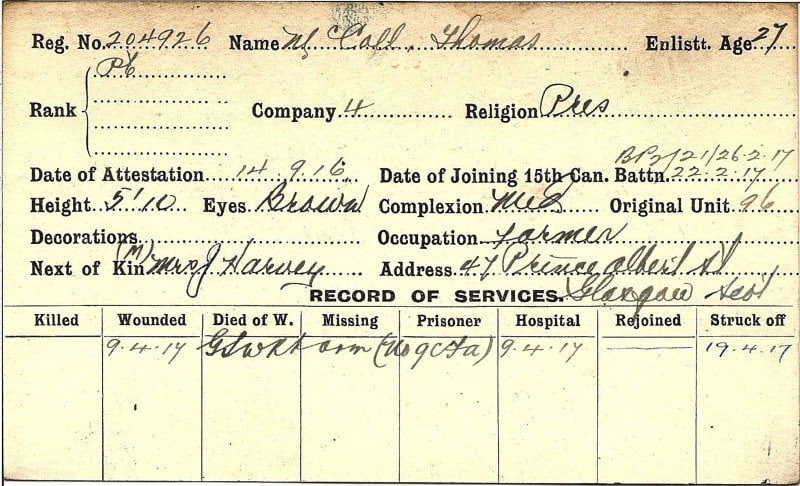 Reg. No. 204926 Name Mc Coll, Thomas Enlistt. Age 27
Pte
Rank Company 4 Religion Pres
21/26-2-17
Date of Attestation 14 9.16. Date of Joining 15th Can. Battn. 22.2.17.
Height 5'10 Eyes Brown Complexion Med Original Unit 96
Decorations Occupation Farmer
Next of Kin (M) Mrs J Harvey Address 47 Prince Albert St
RECORD OF SERVICES. Glasgow Scot
Killed Wounded Died of W. Missing Prisoner Hospital Rejoined Struck off
9.4.17 GSW Rt arm 9.4.17 19.4.17